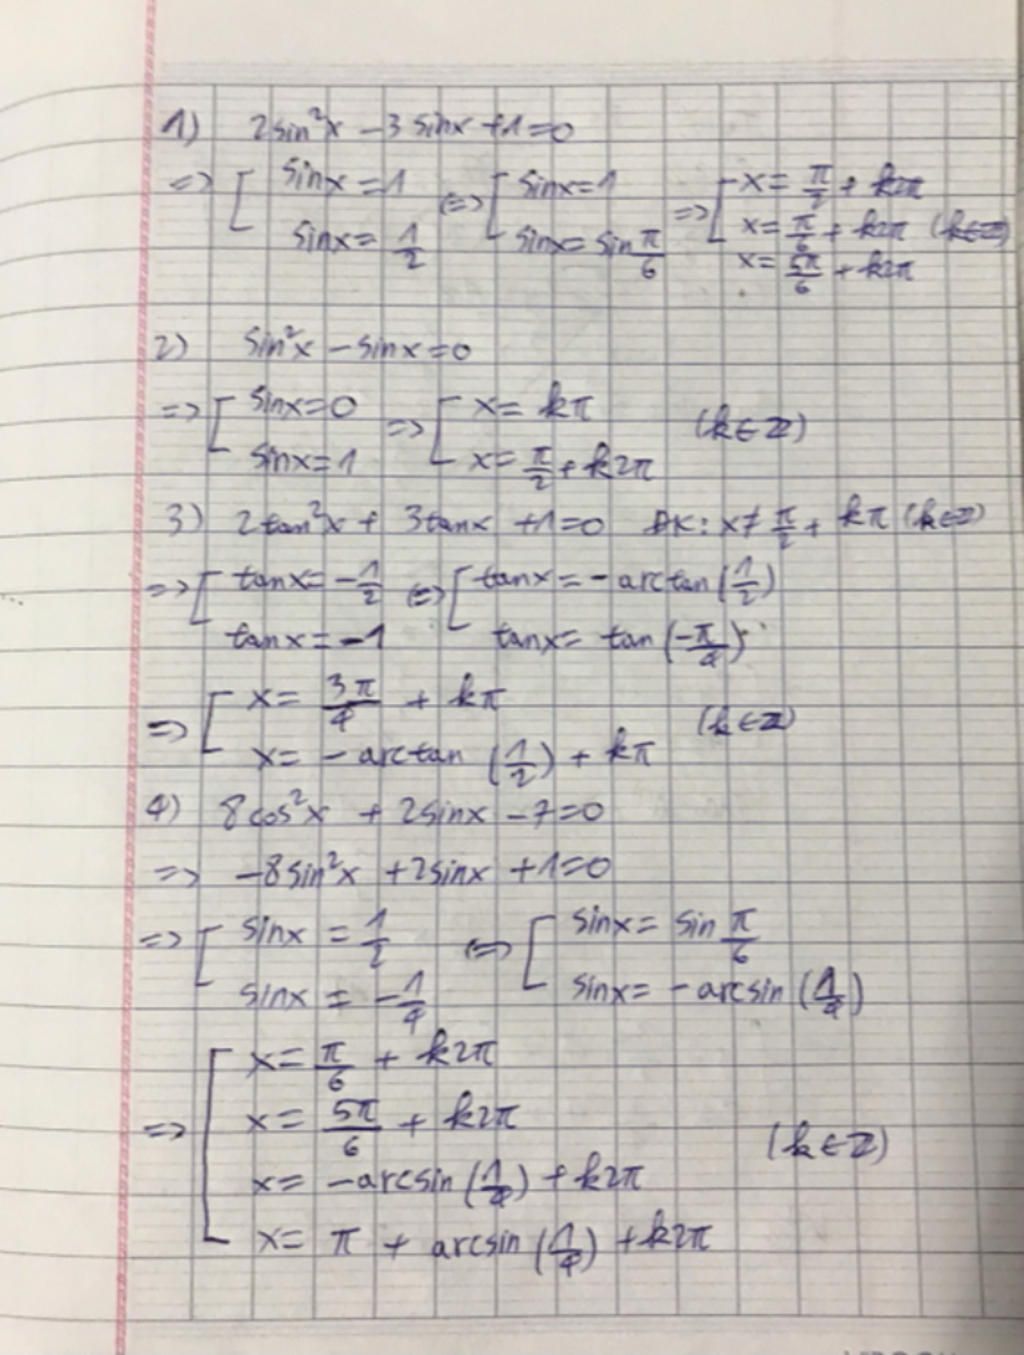 1) 2sin²x - 3sinx + 1 = 0
=> [ sinx = 1 <=> [ sinx = 1 => [ x = π/2 + k2π
sinx = 1/2 sinx = sin π/6 x = π/6 + k2π (k∈Z)
x = 5π/6 + k2π
2) sin²x - sinx = 0
=> [ sinx = 0 => [ x = kπ (k∈Z)
sinx = 1 x = π/2 + k2π
3) 2tan²x + 3tanx + 1 = 0 ĐK: x ≠ π/2 + kπ (k∈Z)
=> [ tanx = -1/2 <=> [ tanx = -arctan (1/2)
tanx = -1 tanx = tan (-π/4)
=> [ x = 3π/4 + kπ (k∈Z)
x = -arctan (1/2) + kπ
4) 8cos²x + 2sinx - 7 = 0
=> -8sin²x + 2sinx + 1 = 0
=> [ sinx = 1/2 <=> [ sinx = sin π/6
sinx = -1/4 sinx = -arcsin (1/4)
=> [ x = π/6 + k2π
x = 5π/6 + k2π (k∈Z)
x = -arcsin (1/4) + k2π
x = π + arcsin (1/4) + k2π